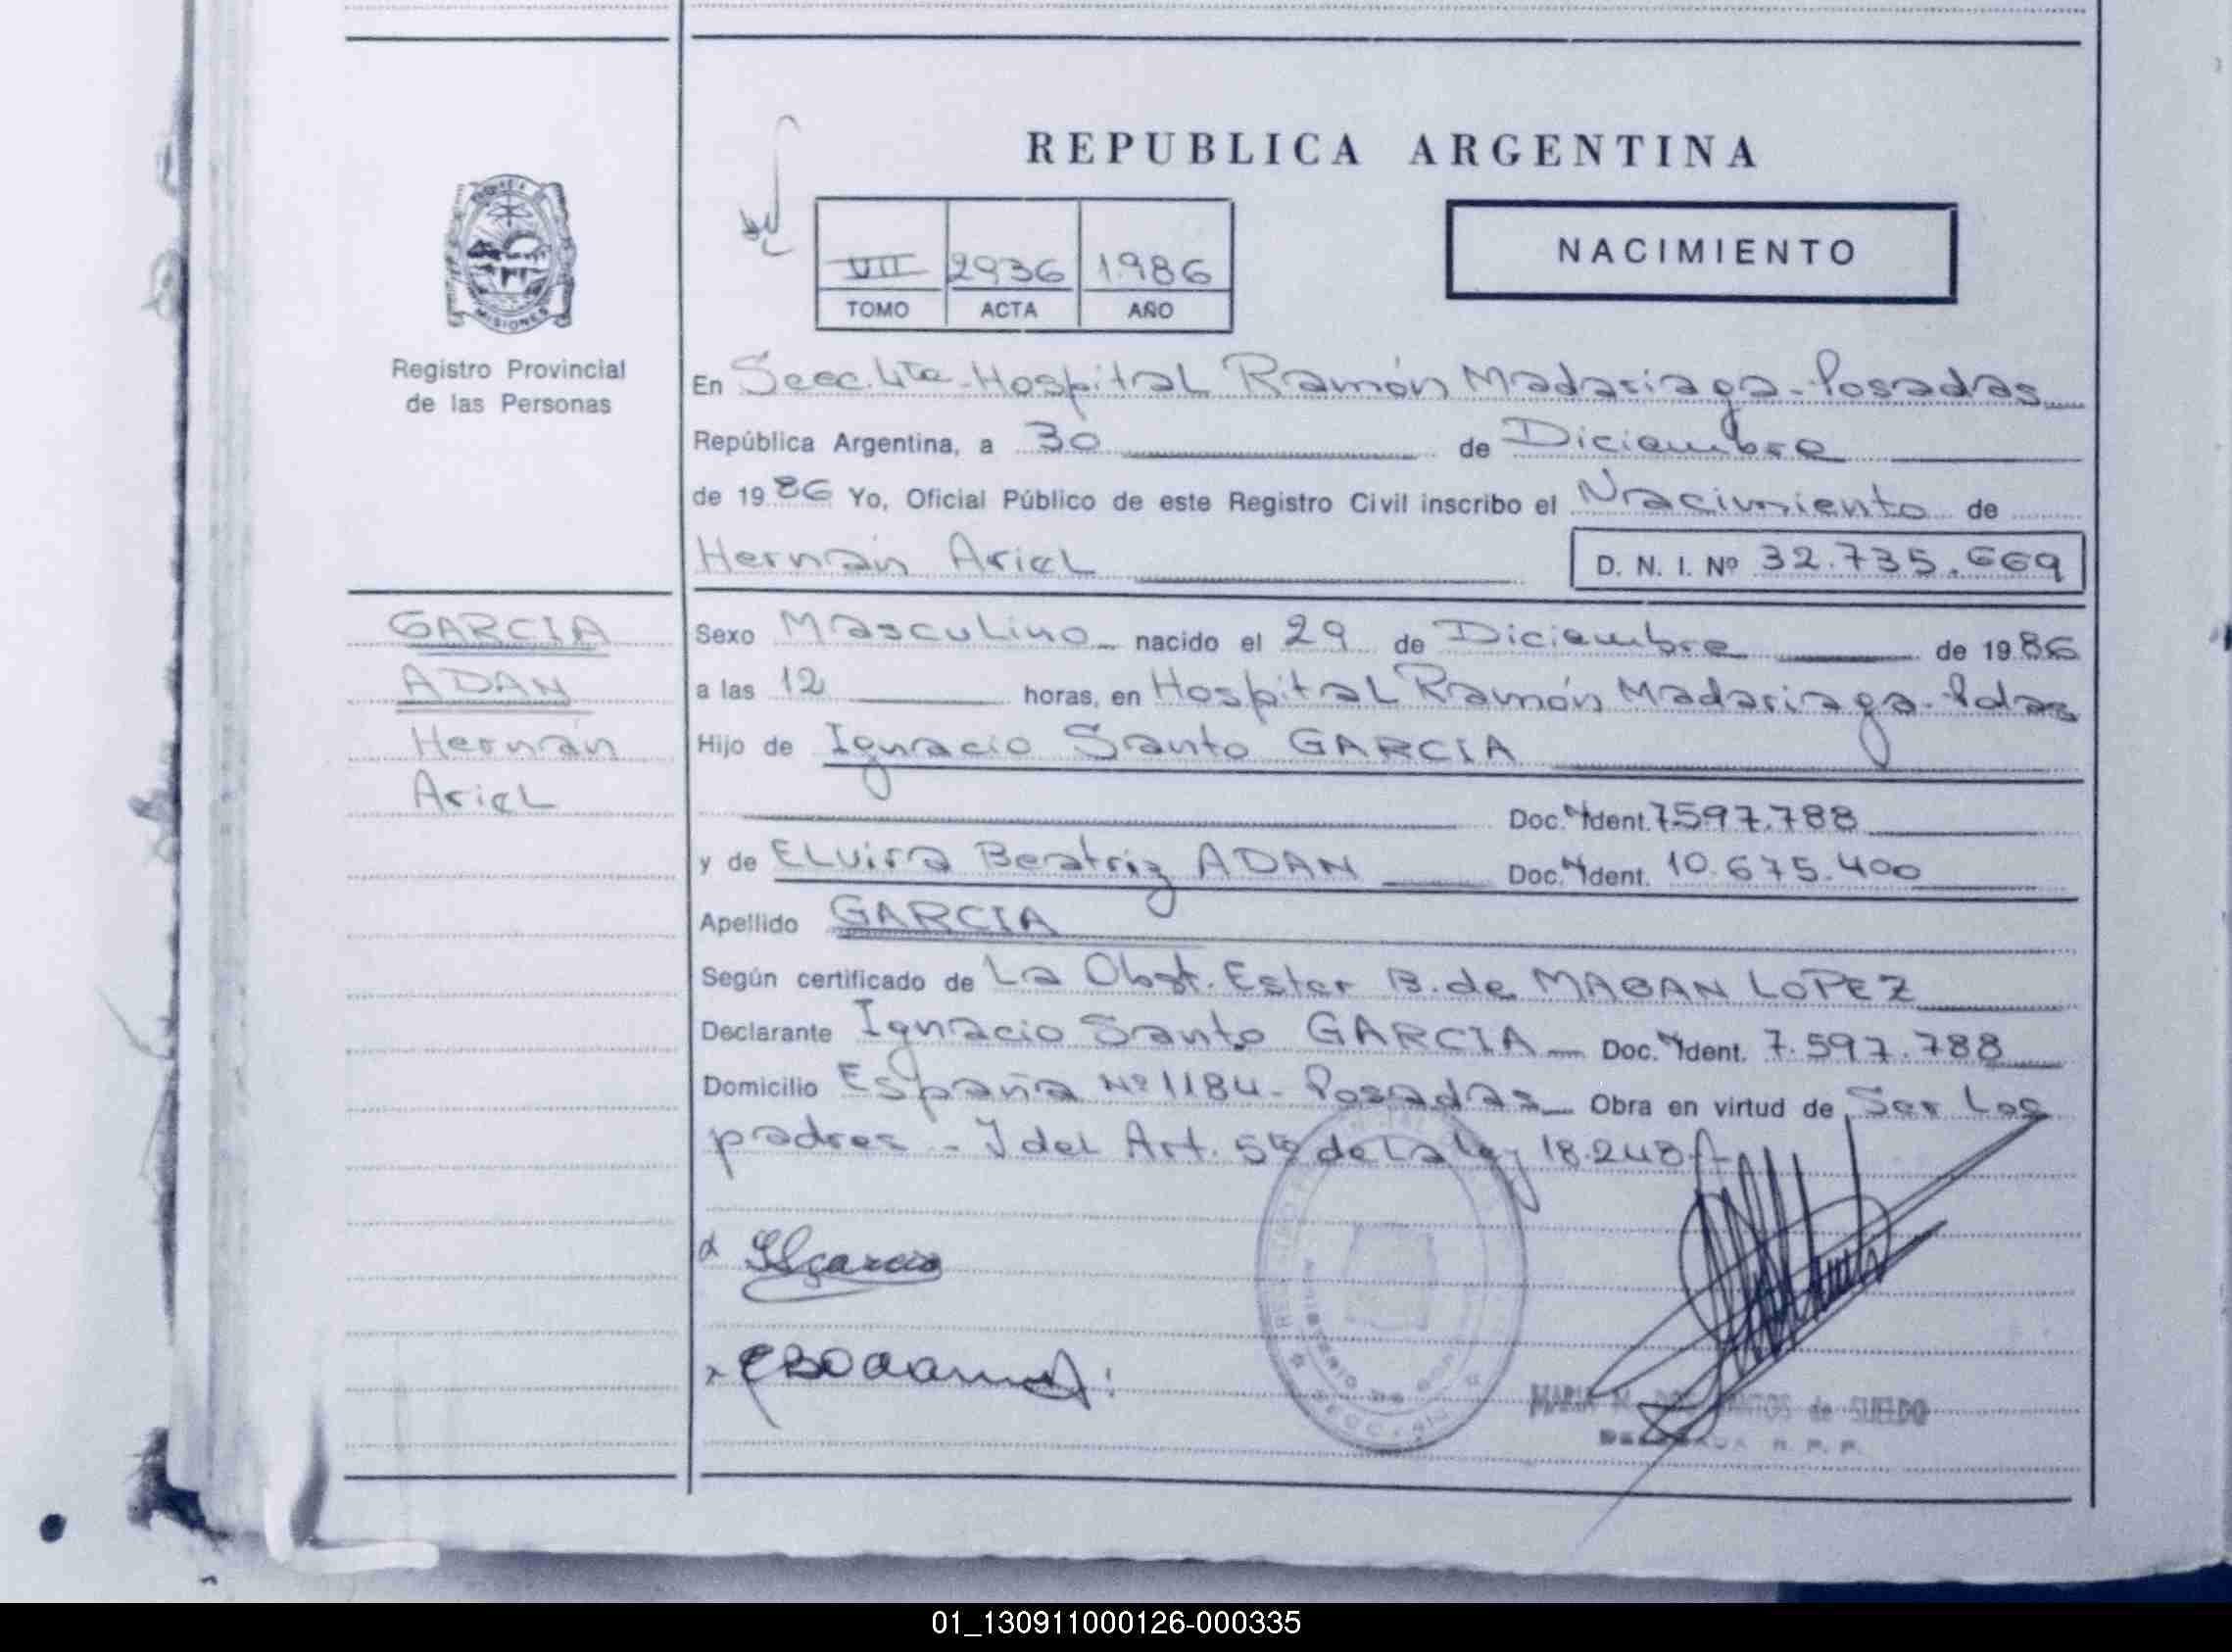 REPUBLICA ARGENTINA
VII 2936 1986
TOMO ACTA AÑO
NACIMIENTO
MISIONES
Registro Provincial
de las Personas
En Secc. 4ta - Hospital Ramón Madariaga - Posadas
República Argentina, a 30 de Diciembre
de 1986 Yo, Oficial Público de este Registro Civil inscribo el Nacimiento de
Hernán Ariel D. N. I. Nº 32.735.669
GARCIA
ADAN
Hernán
Ariel
Sexo Masculino nacido el 29 de Diciembre de 1986
a las 12 horas, en Hospital Ramón Madariaga - Pdas
Hijo de Ignacio Santo GARCIA
Doc. Ident. 7.597.788
y de Elvira Beatriz ADAN Doc. Ident. 10.675.400
Apellido GARCIA
Según certificado de La Obst. Ester B. de MAGAN LOPEZ
Declarante Ignacio Santo GARCIA Doc. Ident. 7.597.788
Domicilio España Nº 1184 - Posadas Obra en virtud de Ser Los
padres - Y del Art. 5to de La Ley 18.248
MARIA M. DOS SANTOS de SUELDO
DELEGADA R. P. P.
01_130911000126-000335